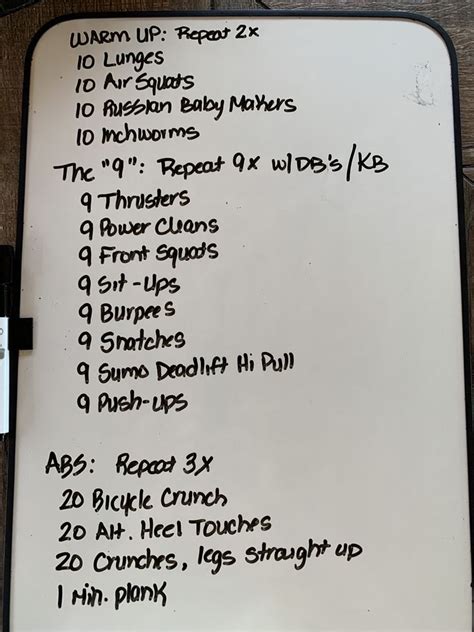 WARM UP: Repeat 2x
10 Lunges
10 Air Squats
10 Russian Baby Makers
10 Inchworms
The "9": Repeat 9x w/DB's/KB
9 Thrusters
9 Power Cleans
9 Front Squats
9 Sit-Ups
9 Burpees
9 Snatches
9 Sumo Deadlift Hi Pull
9 Push-ups
ABS: Repeat 3x
20 Bicycle Crunch
20 Alt. Heel Touches
20 Crunches, legs straight up
1 Min. plank